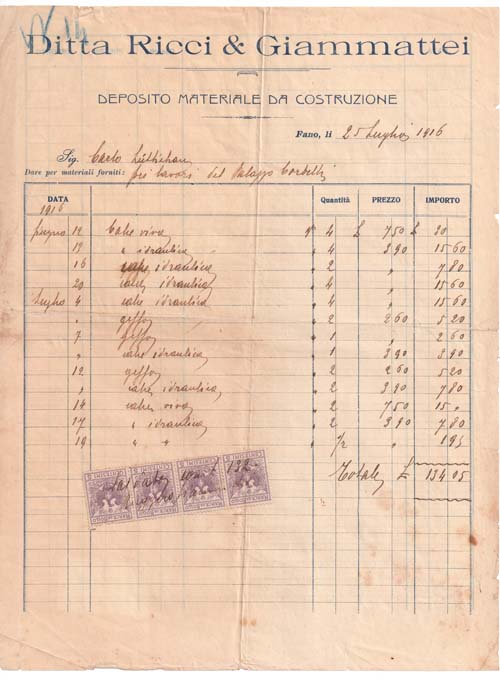 N 14
Ditta Ricci & Giammattei
DEPOSITO MATERIALE DA COSTRUZIONE
Fano, li 25 Luglio 1916
Sig. Carlo
Dare per materiali forniti: pei lavori del Palazzo
DATA Quantità PREZZO IMPORTO
1916
giugno 12 Calce viva 4 £ 7,50 £ 30
12 " idraulica " 4 3 90 15 60
16 calce idraulica " 2 " 7 80
20 calce idraulica " 4 " 15 60
Luglio 4 calce idraulica " 4 " 15 60
" gesso " 2 2 60 5 20
7 gesso " 1 " 2 60
" calce idraulica " 1 3 90 3 90
12 gesso " 2 2 60 5 20
" calce idraulica " 2 3 90 7 80
14 calce viva " 2 7 50 15 "
17 " idraulica " 2 3 90 7 80
19 " " 1/2 " 1 95
Totale £ 134 05